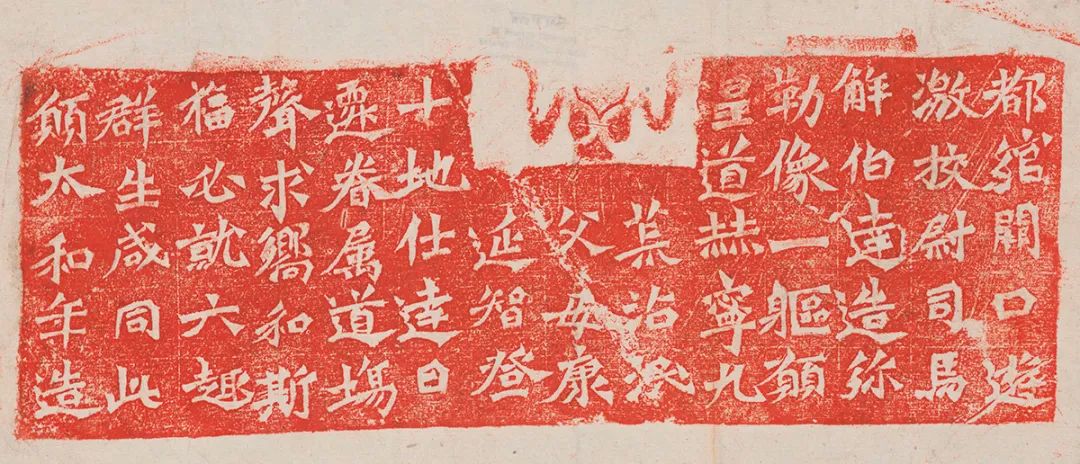 都綰闕口遊
激校尉司馬
解伯達造弥
勒像一軀願
皇道赫寧九
荒沾澄
父母康
延智登
十地仕達日
遷眷属道場
聲求嚮和斯
福必就六趣
群生咸同此
願太和年造